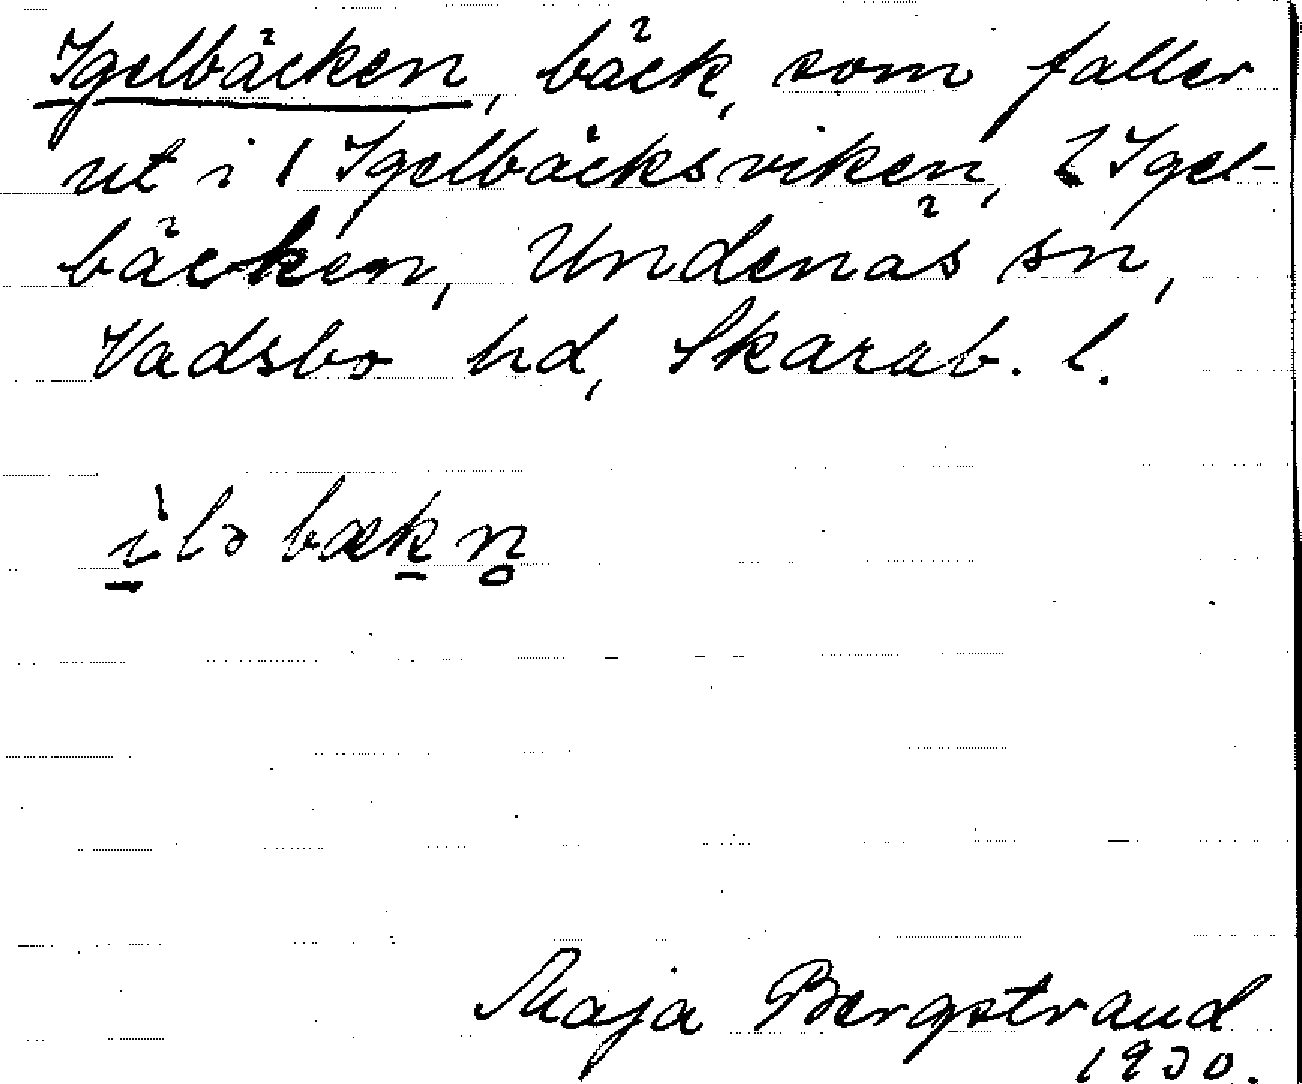 Igelbäcken, bäck, som faller
ut i 1 Igelbäcksviken, 2 Igel-
bäcken, Undenäs sn,
Vadsbo hd, Skarab. l.
ì̠lə bæk̠n̥
Maja Bergstrand
1930.